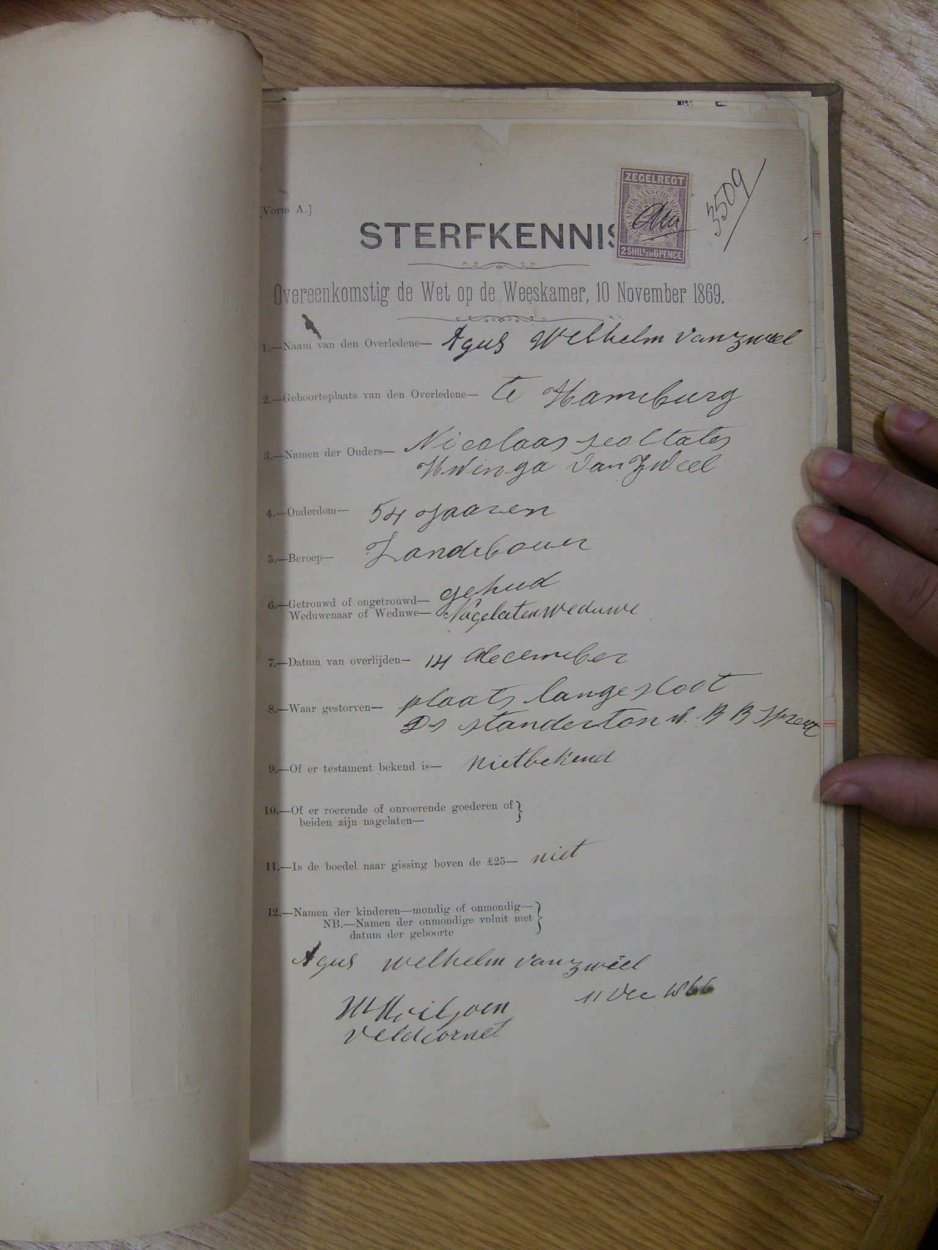 3509
ZEGELREGT
2 SHILS EN 6 PENCE
[Vorm A.]
STERFKENNIS
Overeenkomstig de Wet op de Weeskamer, 10 November 1869.
1.—Naam van den Overledene— Agus Welhelm van zweel
2.—Geboorteplaats van den Overledene— te Hamburg
3.—Namen der Ouders— Nicolaas
van Zweel
4.—Onderdom— 54 jaaren
5.—Beroep— Landbouer
6.—Getrouwd of ongetrouwd— gehud
Weduwenaar of Weduwe— Nagelaten weduwe
7.—Datum van overlijden— 14 december
8.—Waar gestorven— plaats langesloot
Ds standerton
9.—Of er testament bekend is— niet bekend
10.—Of er roerende of onroerende goederen of
beiden zijn nagelaten—
11.—Is de boedel naar gissing boven de £25— niet
12.—Namen der kinderen—mondig of onmondig—
NB.—Namen der onmondige voluit met
datum der geboorte
Agus welhelm van zweel
11 Dec
Veldcornet